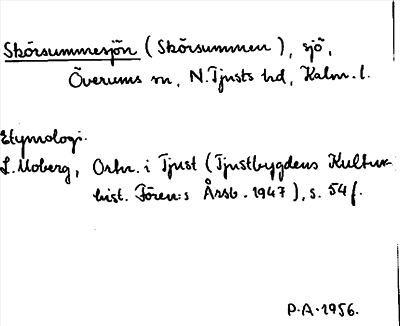 Skörsummesjön (Skörsummen), sjö,
Överums sn, N. Tjusts hd, Kalm. l.
Etymologi.
L. Moberg, Ortn. i Tjust (Tjustbygdens Kultur-
hist. Fören:s Årsb. 1947), s. 54 f.
P.A. 1956.